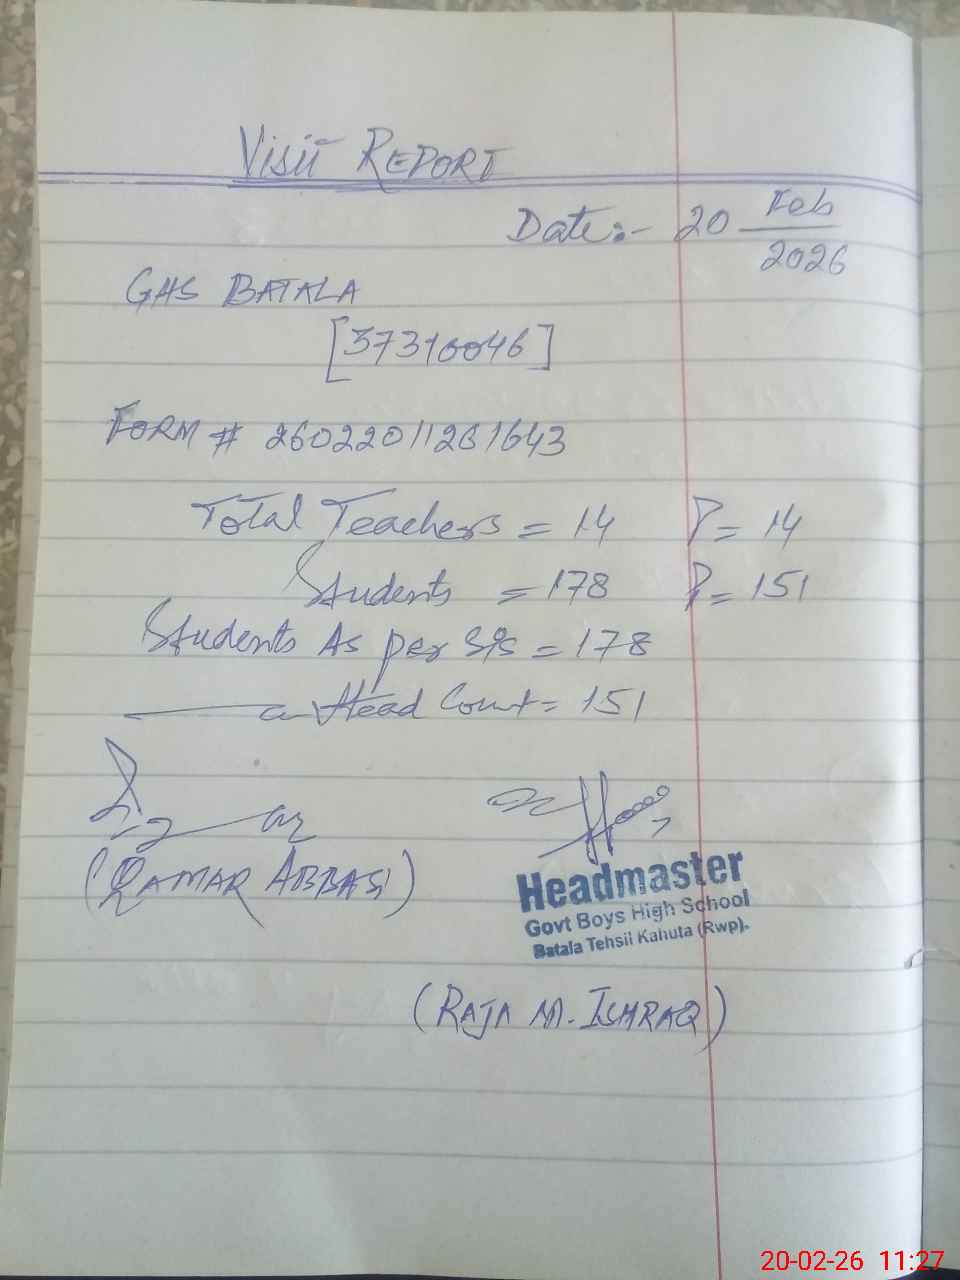 VISIT REPORT
Date:- 20 Feb
2026
GHS BATALA
[37310046]
FORM # 26022011281643
Total Teachers = 14 P = 14
Students = 178 P = 151
Students As per SIS = 178
Head Count = 151
(QAMAR ABBASI)
Headmaster
Govt Boys High School
Batala Tehsil Kahuta (Rwp).
(RAJA M. ISHRAQ)
20-02-26 11:27